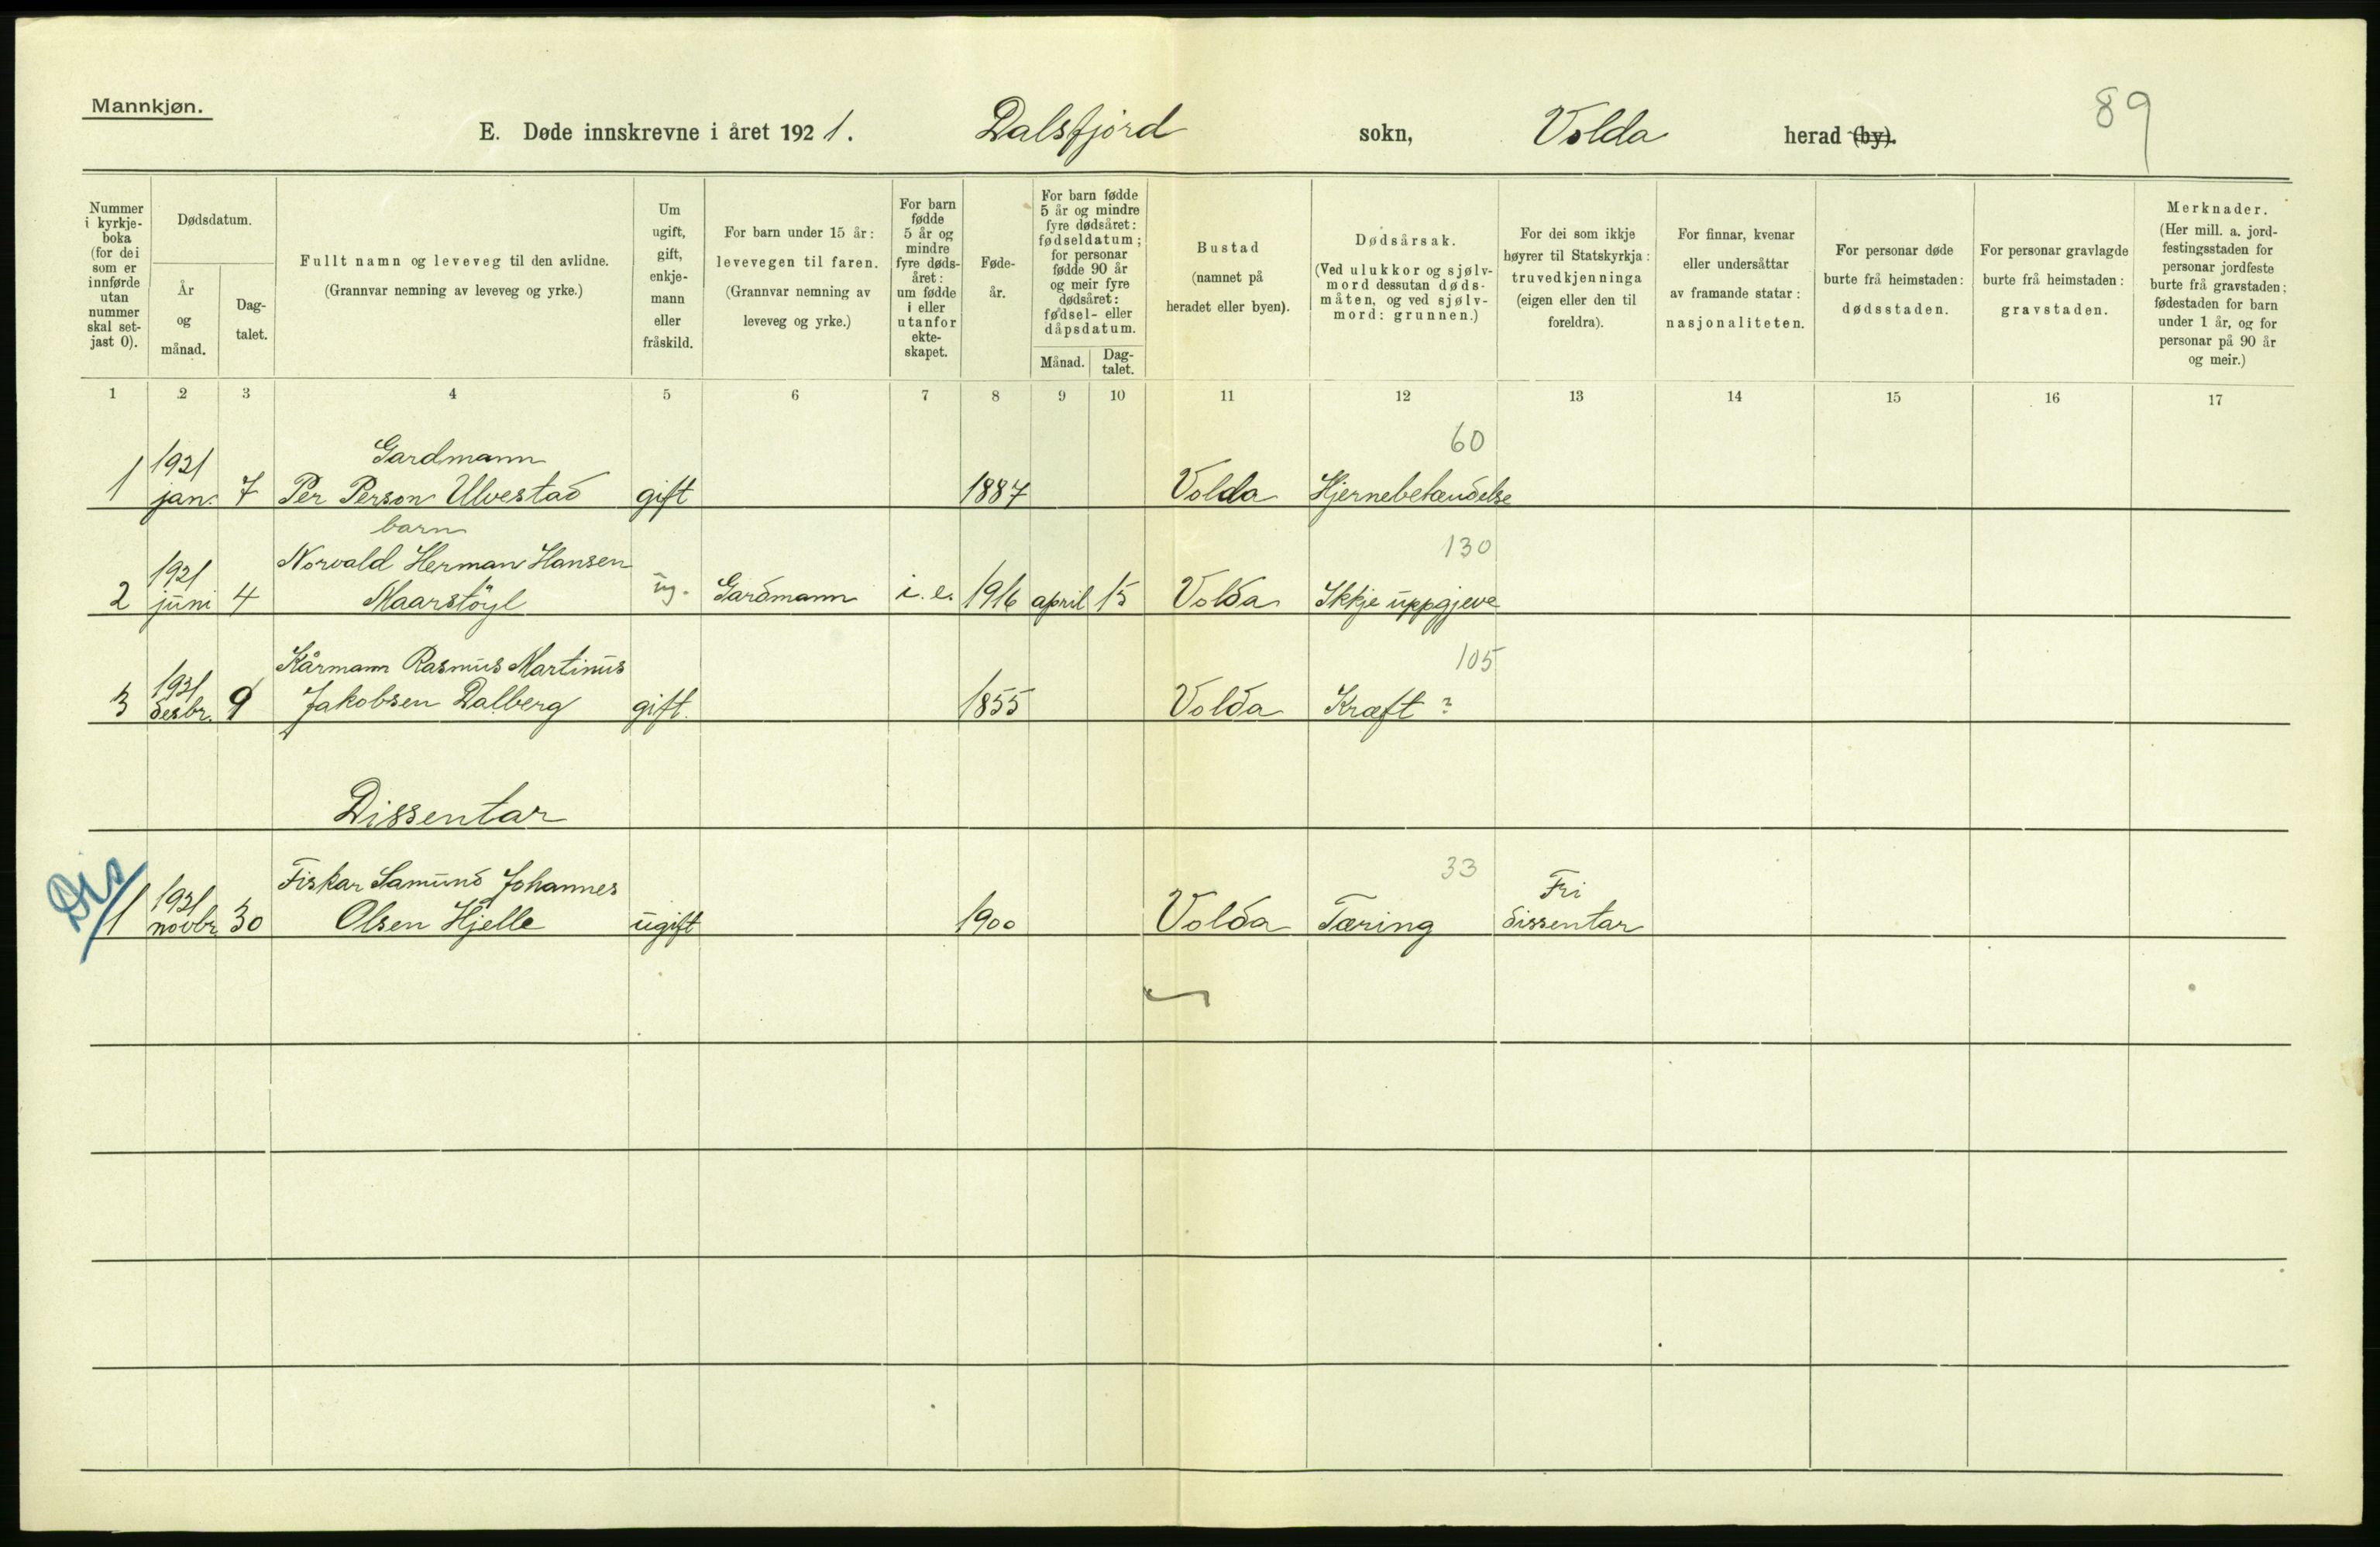 Mannkjøn.
E. Døde innskrevne i året 1921. Dalsfjord sokn, Volda herad (by).
89
Nummer i kyrkje-boka (for dei som er innførde utan nummer skal set-jast 0).
Dødsdatum.
År og månad.
Dag-talet.
Fullt namn og leveveg til den avlidne.
(Grannvar nemning av leveveg og yrke.)
Um ugift, gift, enkje-mann eller fråskild.
For barn under 15 år: levevegen til faren. (Grannvar nemning av leveveg og yrke.)
For barn fødde 5 år og mindre fyre døds-året: um fødde i eller utanfor ekte-skapet.
Føde-år.
For barn fødde 5 år og mindre fyre dødsåret: fødseldatum; for personar fødde 90 år og meir fyre dødsåret: fødsel- eller dåpsdatum.
Månad.
Dag-talet.
Bustad (namnet på heradet eller byen).
Dødsårsak. (Ved ulukkor og sjølv-mord dessutan døds-måten, og ved sjølv-mord: grunnen.)
For dei som ikkje høyrer til Statskyrkja: truvedkjenninga (eigen eller den til foreldra).
For finnar, kvenar eller undersåttar av framande statar: nasjonaliteten.
For personar døde burte frå heimstaden: dødsstaden.
For personar gravlagde burte frå heimstaden: gravstaden.
Merknader. (Her mill. a. jord-festingsstaden for personar jordfeste burte frå gravstaden; fødestaden for barn under 1 år, og for personar på 90 år og meir.)
1 2 3 4 5 6 7 8 9 10 11 12 13 14 15 16 17
1921 Gardmann 60
1 jan. 7 Per Person Ulvestad gift 1887 Volda Hjernebetændelse
barn
1921 Norvald Herman Hansen 130
2 juni 4 Maarstöyl ug. Gardmann i. e. 1916 april 15 Volda Ikkje uppgjeve
1921 Kårmann Rasmus Martinus 105
3 desbr. 9 Jakobsen Dalberg gift. 1855 Volda Kræft ?
Dissentar
Dis
1921 Fiskar Samund Johannes 33 Fri
1 novbr 30 Olsen Hjelle ugift 1900 Volda Tæring dissentar